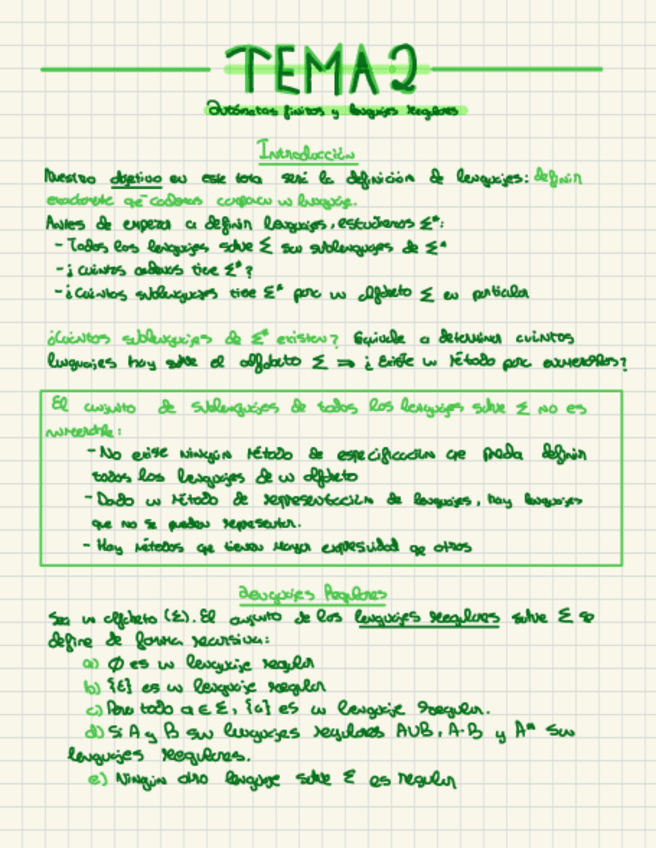 TEMA 2
Autómatas finitos y lenguajes regulares
Introducción
Nuestro objetivo en este tema será la definición de lenguajes: definir
exactamente qé cadenas componen un lenguaje.
Antes de empezar a definir lenguajes, estudiemos Σ*:
- Todos los lenguajes sobre Σ son sublenguajes de Σ*
- ¿Cuántas cadenas tiene Σ*?
- ¿Cuántos sublenguajes tiene Σ* para un alfabeto Σ en particular
¿Cuántos sublenguajes de Σ* existen? Equivale a determinar cuántos
lenguajes hay sobre el alfabeto Σ ⇒ ¿Existe un método para enumerarlos?
El conjunto de sublenguajes de todos los lenguajes sobre Σ no es
numerable:
- No existe ningún método de especificación qe pueda definir
todos los lenguajes de un alfabeto
- Dado un método de representación de lenguajes, hay lenguajes
que no se pueden representar.
- Hay métodos qe tienen mayor expresividad qe otros
Lenguajes Regulares
Sea un alfabeto (Σ). El conjunto de los lenguajes regulares sobre Σ se
define de forma recursiva:
a) Ø es un lenguaje regular
b) {ε} es un lenguaje regular
c) Para todo a ∈ Σ, {a} es un lenguaje regular.
d) Si A y B son lenguajes regulares A∪B, A·B y A* son
lenguajes regulares.
e) Ningún otro lenguaje sobre Σ es regular